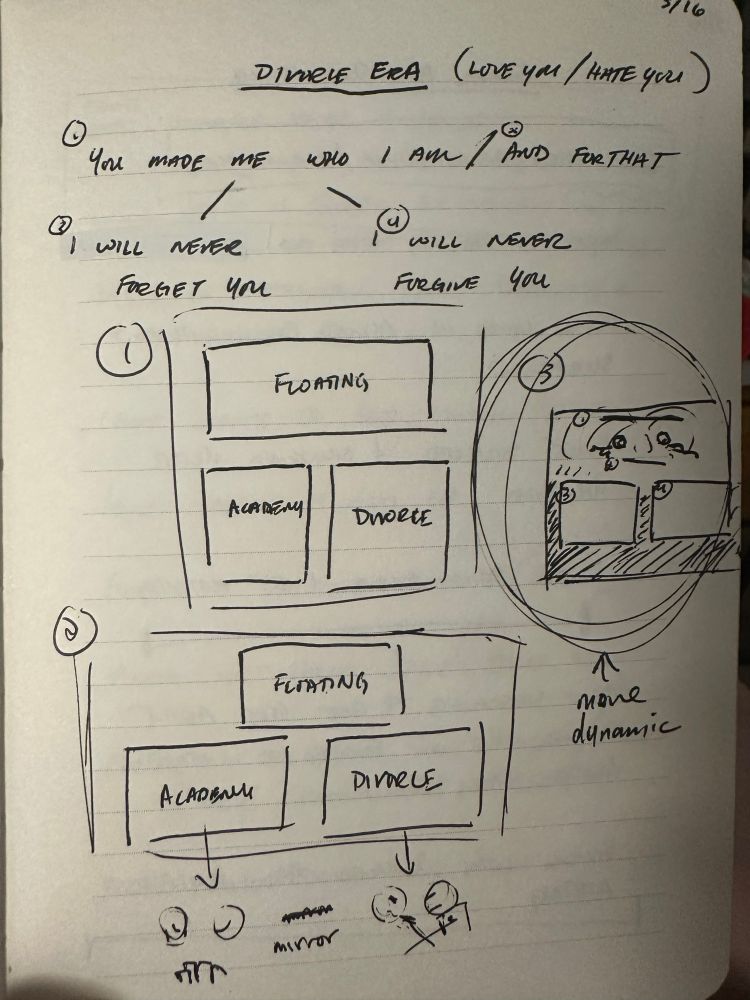 3/16
DIVORCE ERA (LOVE YOU / HATE YOU)
① YOU MADE ME WHO I AM / ② AND FOR THAT
③ I WILL NEVER
FORGET YOU
④ I WILL NEVER
FORGIVE YOU
①
FLOATING
ACADEMY
DIVORCE
③
①
②
③
④
more
dynamic
②
FLOATING
ACADEMY
DIVORCE
mirror